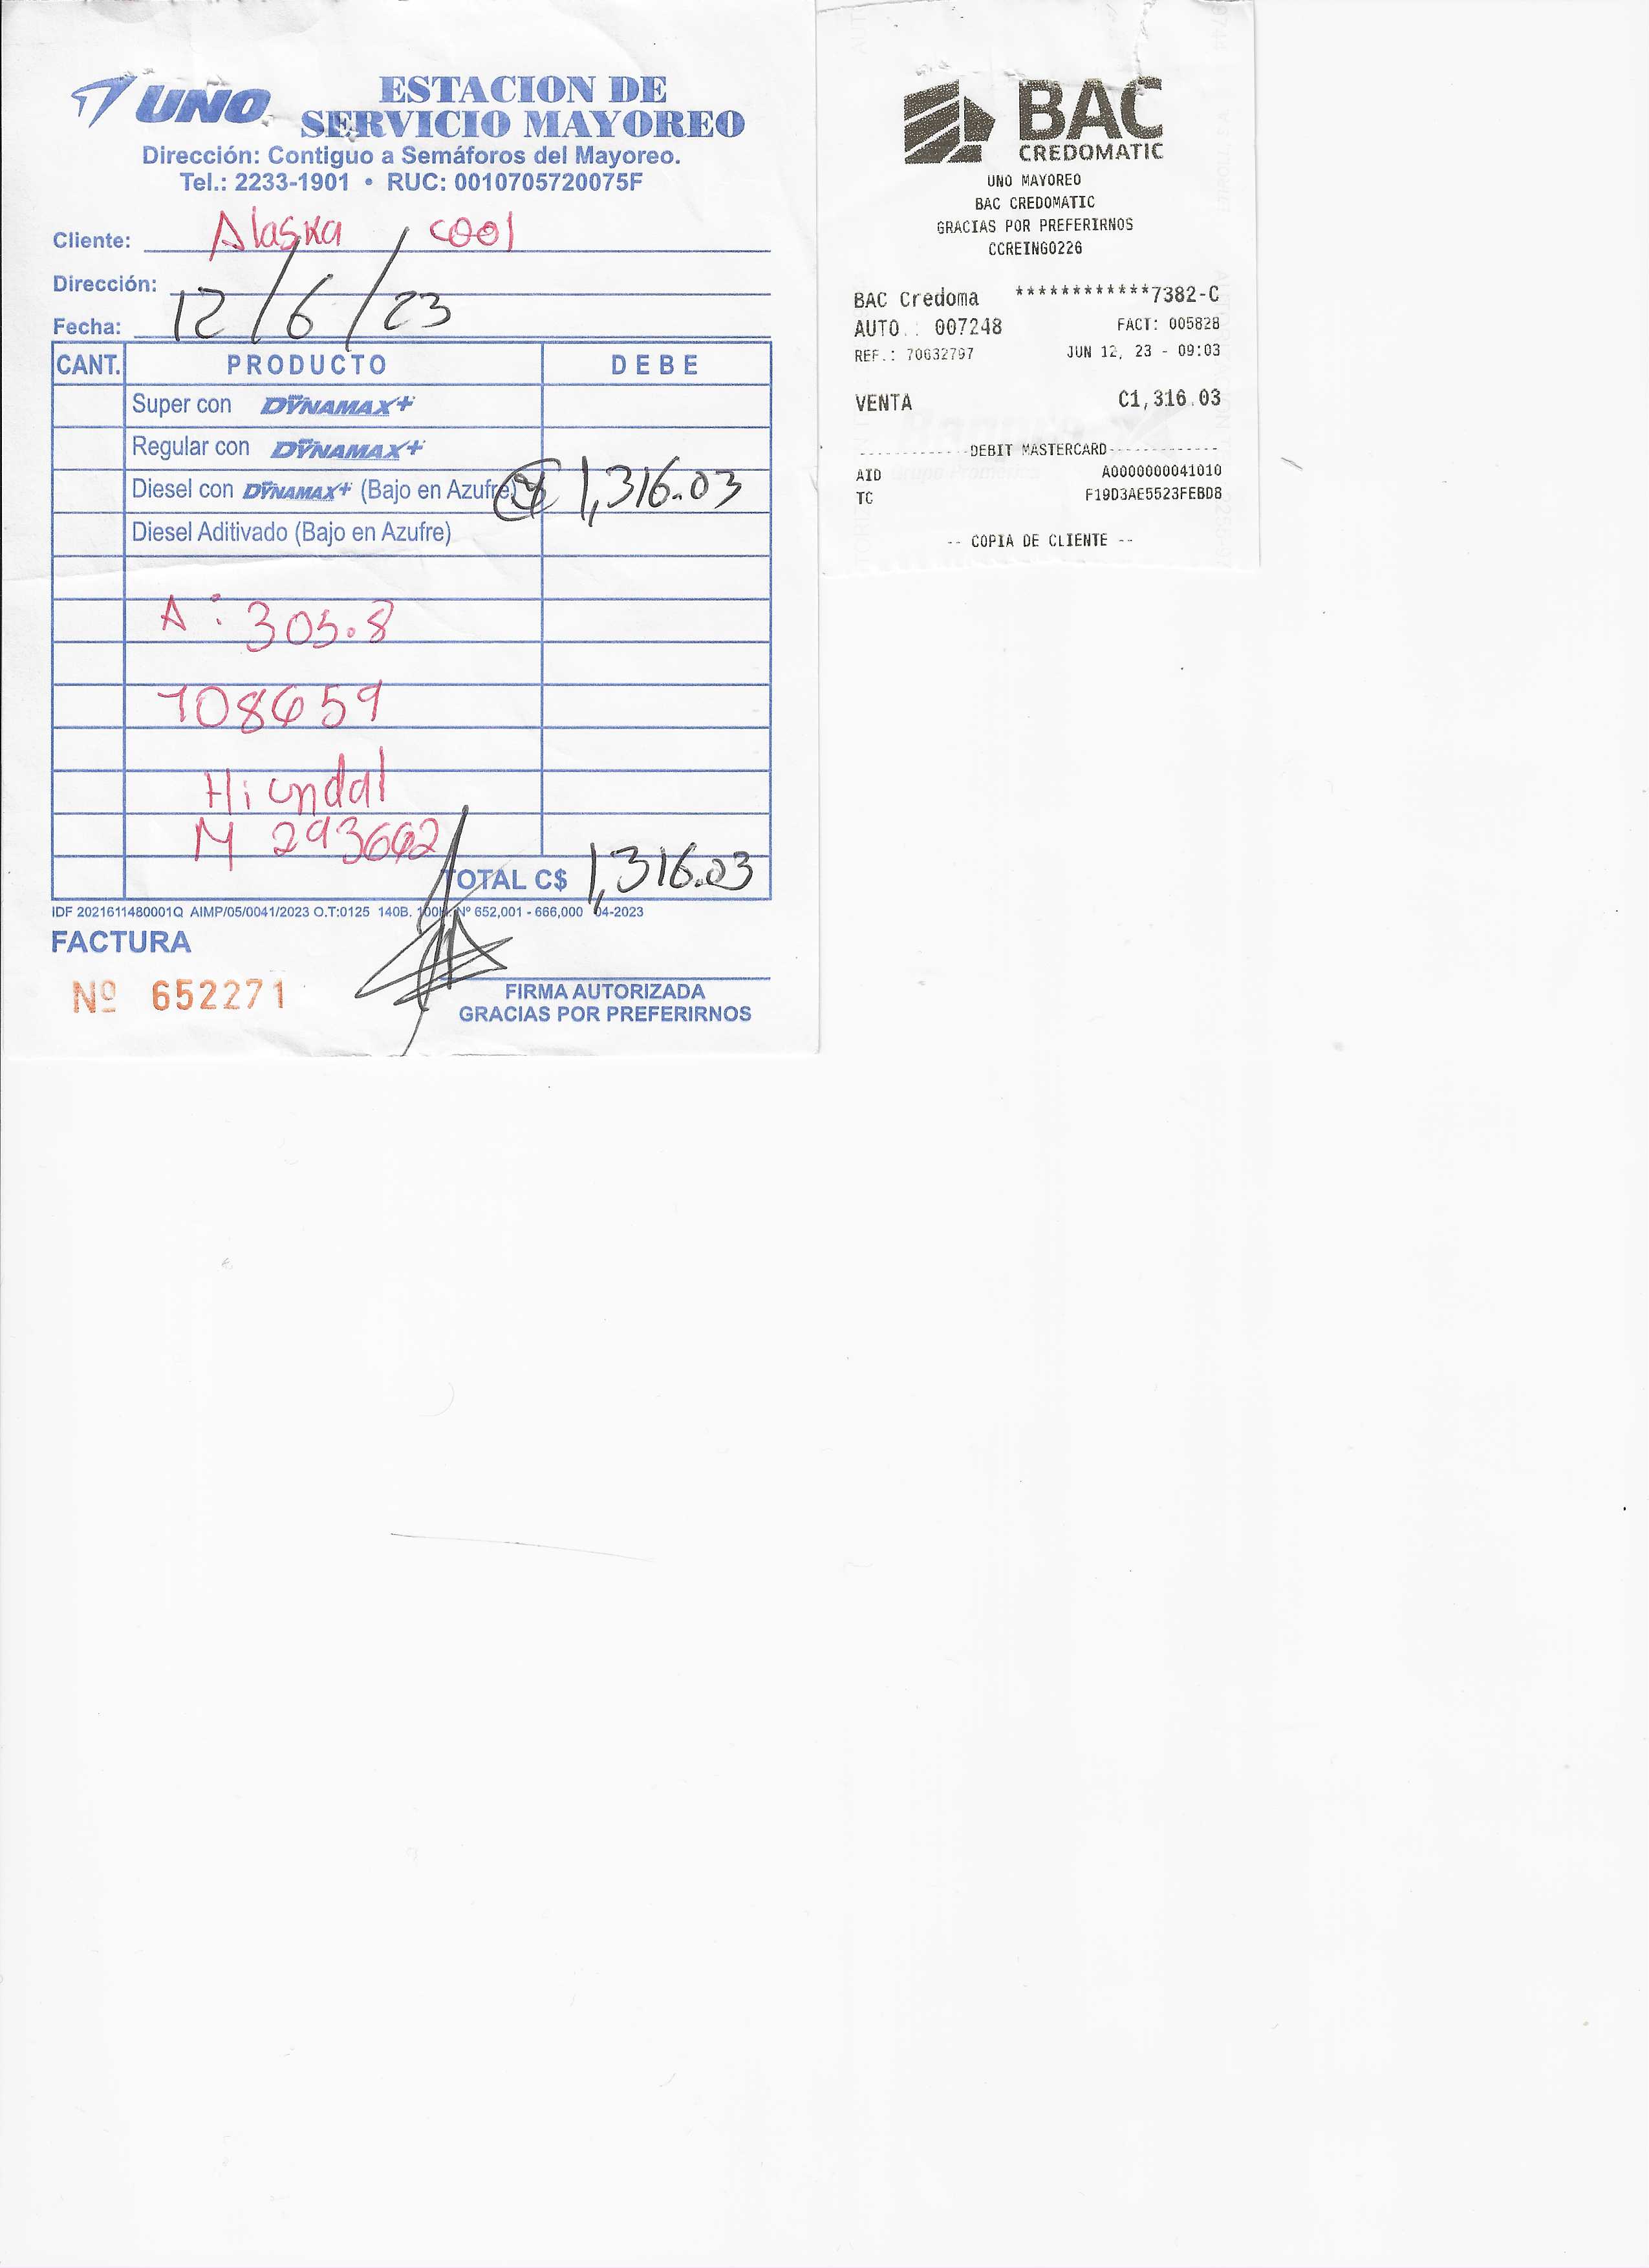 UNO
ESTACION DE
SERVICIO MAYOREO
Dirección: Contiguo a Semáforos del Mayoreo.
Tel.: 2233-1901 • RUC: 0010705720075F
Cliente: Alaska cool
Dirección:
Fecha: 12/6/23
CANT. PRODUCTO DEBE
Super con DYNAMAX+
Regular con DYNAMAX+
Diesel con DYNAMAX+ (Bajo en Azufre) 1,316.03
Diesel Aditivado (Bajo en Azufre)
A: 305.8
708659
Hiundal
M 293662
TOTAL C$ 1,316.03
IDF 2021611480001Q AIMP/05/0041/2023 O.T:0125 140B. Nº 652,001 - 666,000 04-2023
FACTURA
Nº 652271
FIRMA AUTORIZADA
GRACIAS POR PREFERIRNOS
BAC
CREDOMATIC
UNO MAYOREO
BAC CREDOMATIC
GRACIAS POR PREFERIRNOS
CCREING0226
BAC Credoma ************7382-C
AUTO.: 007248 FACT: 005828
REF.: 70632797 JUN 12, 23 - 09:03
VENTA C1,316.03
-------------DEBIT MASTERCARD-------------
AID A0000000041010
TC F19D3AE5523FEBD8
-- COPIA DE CLIENTE --